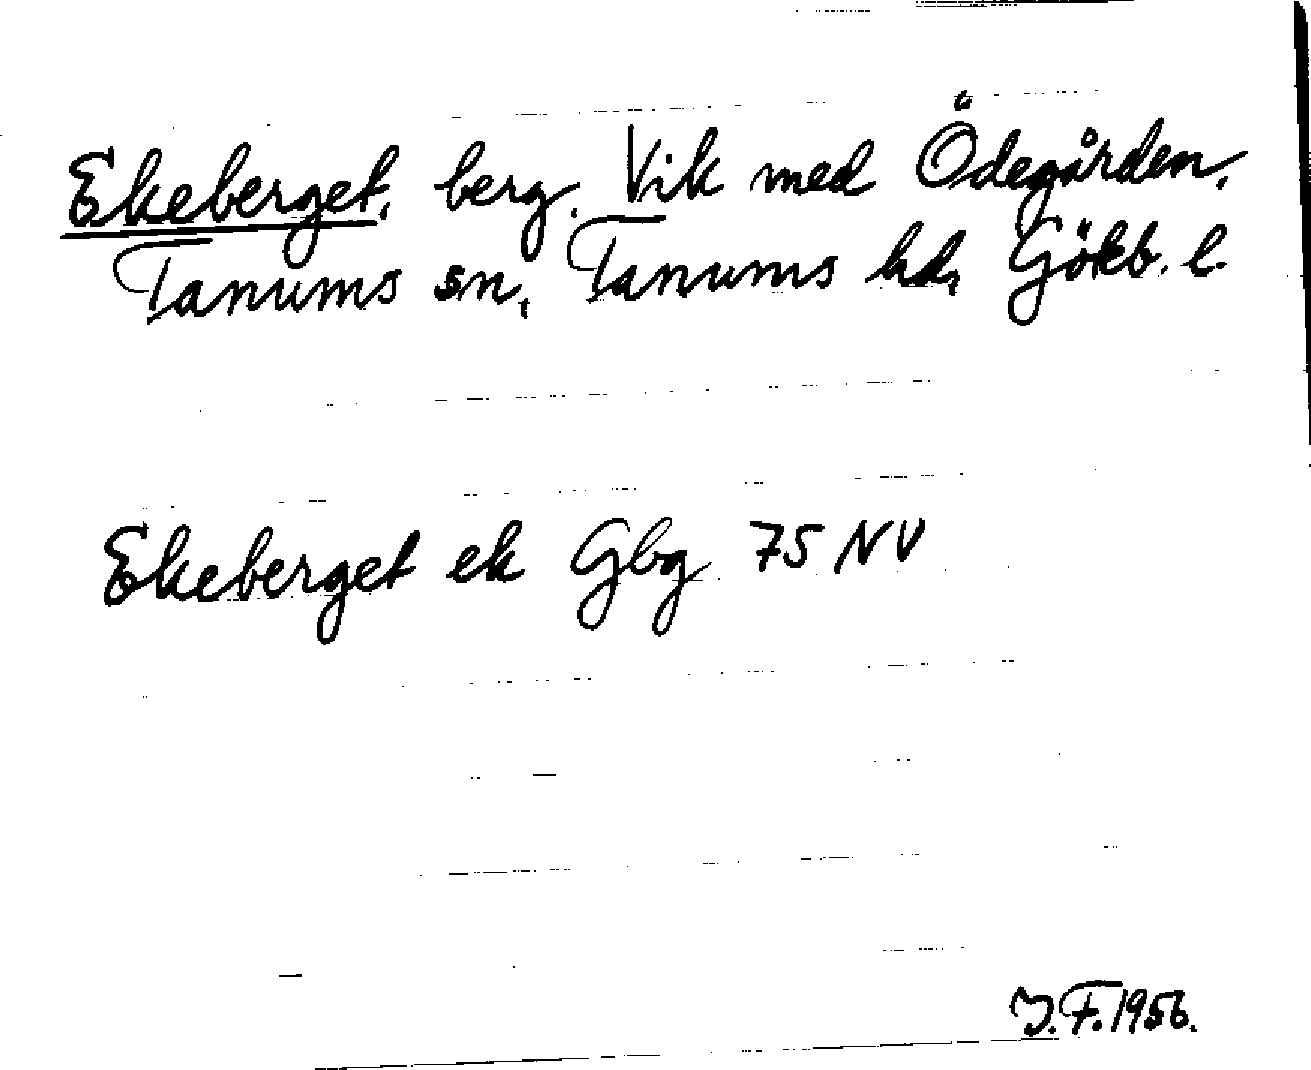 Ekeberget, berg. Vik med Ödegården,
Tanums sn, Tanums hd, Gökb. l.
Ekeberget ek Gbg 75 NV
J.F. 1956.